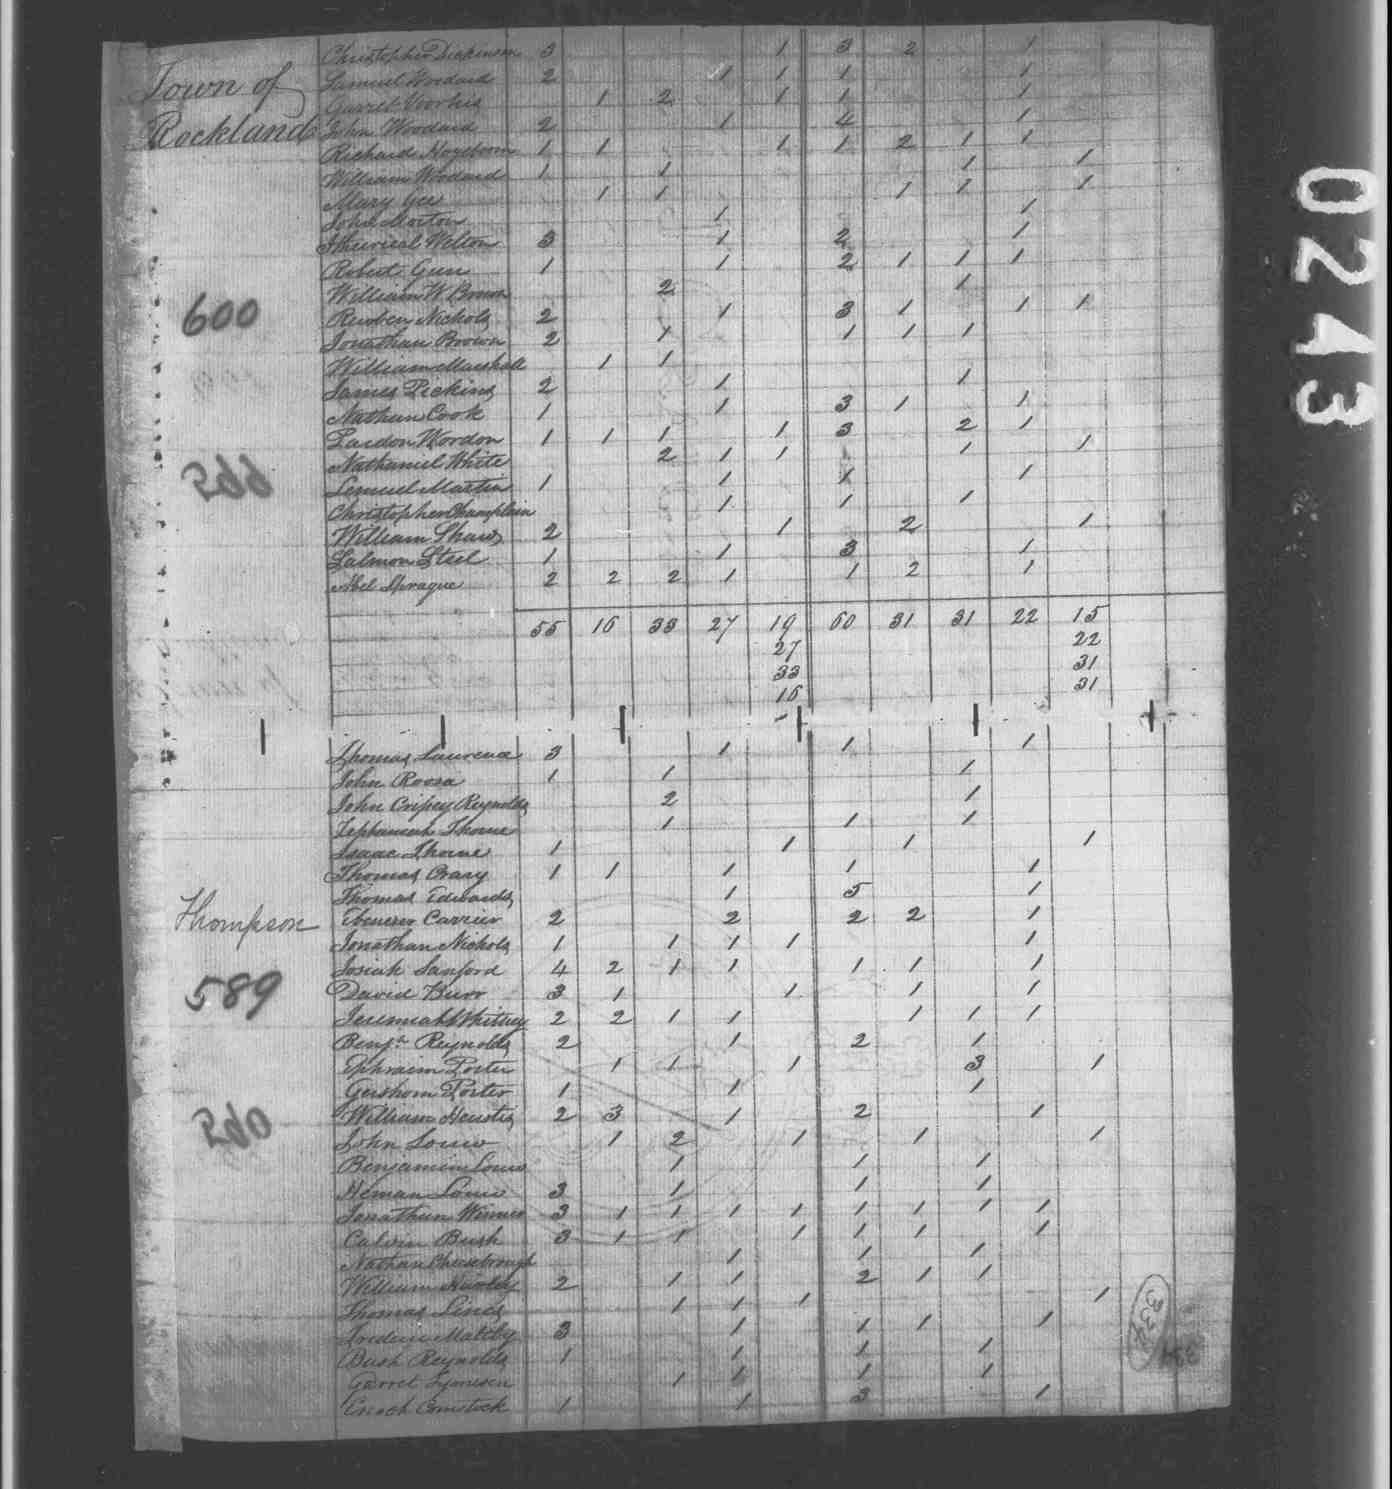 Town of
Rockland
Christopher Dickinson 3 1 3 2 1
Samuel Woodard 2 1 1 1 1
Garret Voorhis 1 2 1 1 1
John Woodard 2 1 4 1
Richard 1 1 1 1 2 1 1
William Woodard 1 1 1 1
Mary Gee 1 1 1 1 1
John Morton 1 1
Welton 3 1 2 1
Robert Gun 1 1 2 1 1 1
William W Brown 2 1
600
Reuben Nichols 2 1 3 1 1 1
Jonathan Brown 2 1 1 1 1
William Marshall 1 1
James Pickins 2 1 1
Nathan Cook 1 1 3 1 1
Pardon Wordon 1 1 1 1 3 2 1
Nathaniel White 2 1 1 1 1
Lemuel Martin 1 1 1 1
Christopher Champlain 1 1 1
William Shaw 2 1 2 1
Salmon Steel 1 1 3 1
Abel Sprague 2 2 2 1 1 2 1
55 16 33 27 19 60 31 31 22 15
27 22
33 31
16 31
Thomas Laurence 3 1 1 1
John Roosa 1 1 1
John Cripey Reynolds 2 1
Zephaniah Thorne 1 1 1
Isaac Thorne 1 1 1 1
Thomas Crary 1 1 1 1 1
Thomas Edwards 1 5 1
Thompson
Ebenezer Carrier 2 2 2 2 1
Jonathan Nichols 1 1 1 1 1
Josiah Sanford 4 2 1 1 1 1 1
589
David Burr 3 1 1 1 1
Jeremiah Whitney 2 2 1 1 1 1 1
Benjn Reynolds 2 1 2 1
Ephraim Porter 1 1 1 3 1
Gershom Porter 1 1 1
William Heustis 2 3 1 2 1
John 1 2 1 1 1
Benjamin 1 1 1
Heman 3 1 1 1
Jonathan 3 1 1 1 1 1 1 1 1
Calvin Bush 3 1 1 1 1 1 1
Nathan Cheesebrough 1 1 1
William 2 1 1 2 1 1
Thomas Lines 1 1 1 1
Maltby 3 1 1 1 1
Bush Reynolds 1 1 1 1
Garret 1 1 1 1
Enoch Comstock 1 1 3 1
334
0243